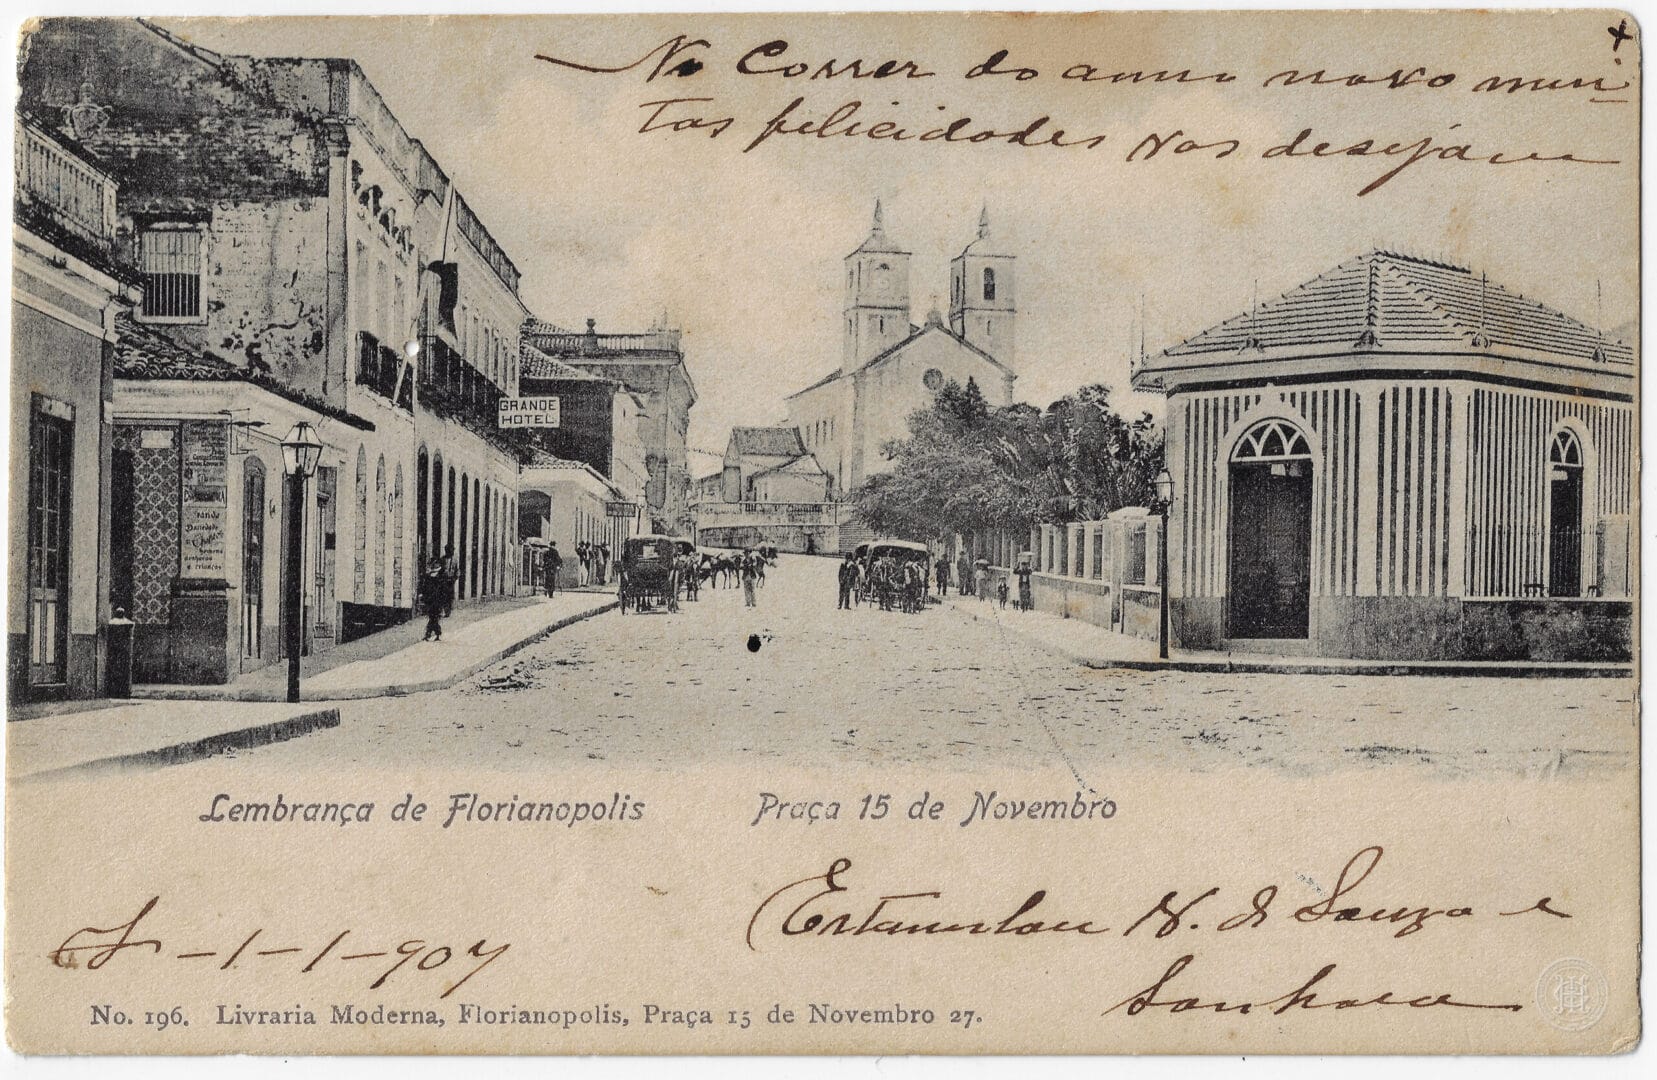 No Correr do anno novo mui-
tas felicidades vos desejam
GRANDE
HOTEL
Grande
Variedade
Chapeos
homens
senhoras
e crianças
Lembrança de Florianopolis Praça 15 de Novembro
Estanislau N. de Souza e
Senhora
F-1-1-907
No. 196. Livraria Moderna, Florianopolis, Praça 15 de Novembro 27.